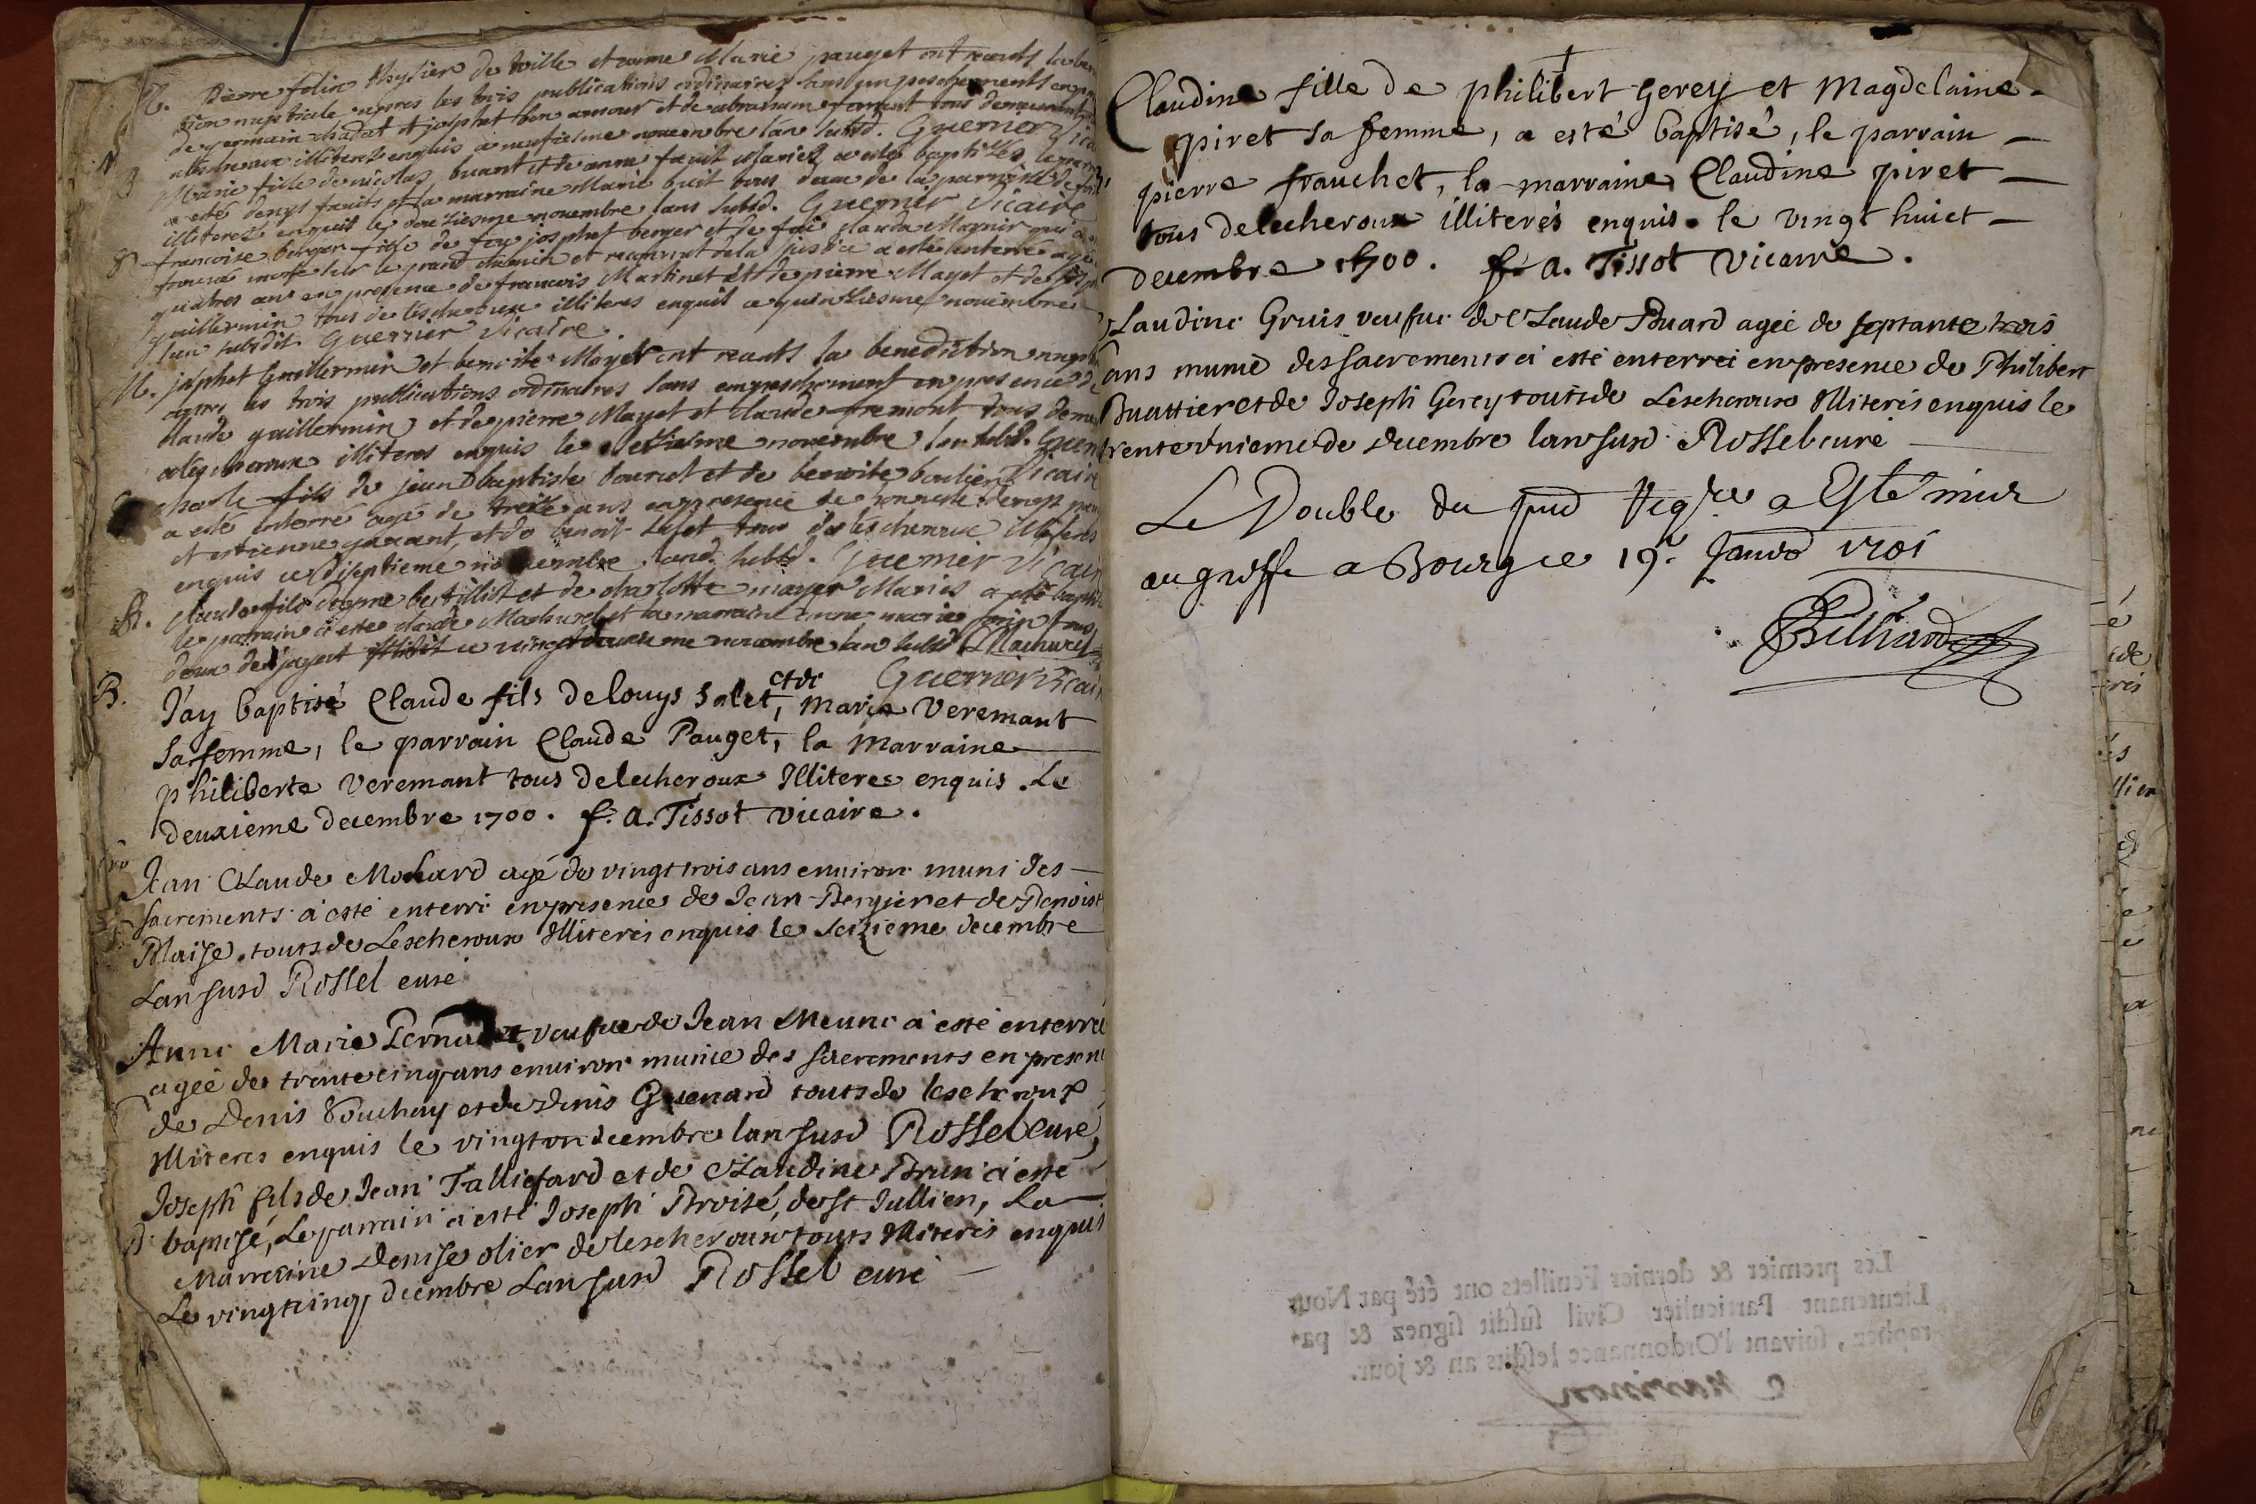 M. pierre felix thysier de ville et anne Marie pauget ont receuts la
tion nuptiale apres les trois publications ordinaires sans empeschements en
de germain chadat et josphet bon amour et de abraham forment tous demeurant
illiteres enquis ce neufiesme novembre l'an subsd. Guernier
B Marie fille de nicolas buant et de anne faruit Maries a este baptisee
a esté denys faruit et la marraine Marie buit tous deux de la paroisse de
illiteres enquis le douziesme novembre l'ans subsd. Guernier Vicaire
francoise berger fille de feu josphet berger et de feu clauda Magnin qui a
trouvé morte sur le grand chemin et recognut de la justice a este enterré agé
quatres ans en presence de francois Martinet et de pierre Mayet et de
guillermin tous de lescheroux illiteres enquis ce quinziesme novembre
l'an subsdit Guernier Vicaire.
M. josphet Guillermin et benoite Mayet ont receuts la benediction nuptia
apres les trois publications ordinaires sans empeschement en presence de
claude guillermin et de pierre Mayet et claude fremont tous deme
a lescheroux illiteres enquis le seiziesme novembre l'an subsd. Guern
charle fils de jean baptiste bouret et de benoite boulier Vicaire
a esté enterré agé de treize ans en presence de
et estienne garant, et de benoit tous de lescheroux illiteres
enquis ce dixseptieme novembre l'and. subsd. Guernier Vicaire
B. claude fils de pierre bertillist et de charlotte mayer Maries a esté baptisé
le parrain a este claude Machurel et la marraine anne marie tous
deux de jayat illisit ce vingtdeuxieme novembre l'an subsd C Machurel
Guernier Vicair
B. J'ay baptisé Claude fils de louys Salet, et de marie Veremant
Sa femme, le parrain Claude Pauget, la marraine
philiberte Veremant tous de lecheroux Illiteres enquis. Le
deuxieme decembre 1700. f. a. Tissot Vicaire.
Jean Claude Monard agé de vingt trois ans environ muni des
sacrements a esté enterré en presence de Jean Bergier et de Benoist
Blaise touts de Lescheroux Illiteres enquis le seizieme decembre
L'an susd Rossel curé
Anne Marie Pernadet veufue de Jean Meunc a esté enterrée
agéé de trente cinq ans environ munie des sacrements en presen
de Denis Bouchay et de Denis Guenard touts de lescheroux
Illiteres enquis le vingt on decembre l'an susd Rossel curé,
Joseph fils de Jean Tallichard et de Claudine Brun a esté
B baptisé, Le parrain a esté Joseph Broisé, de St Jullien, La
Marreine Denise olier de lescheroux touts Illiteres enquis
Le vingt cinq decembre L'an susd Rossel curé
Claudine fille de philibert Gerey et Magdelaine
piret sa femme, a esté baptisé, le parrain
pierre frauchet, la marraine Claudine piret
tous de lecheroux illiterés enquis. le vingt huict
decembre 1700. f. a. Tissot Vicaire.
Claudine Gruis veufue de Claude Buard ageé de septante trois
ans munie des sacrements a esté enterreé en presence de Philibert
Buattier et de Joseph Gerey touts de Lescheroux Illiterés enquis le
trente unieme de decembre l'an susd Rossel curé
Le Double du pnd Regre a Este mis
au greffe a Bourg ce 19e Janvr 1701
Les premier & dernier Feuillets ont été par Nous
Lieutenant Particulier Civil susdit signez & pa-
raphez, suivant l'Ordonnance lesdits an & jour.